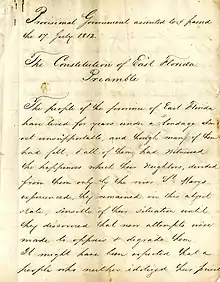 Provisional Government assented to & passed
the 17 July 1812.
The Constitution of East Florida
Preamble
The people of the province of East Florida
have lived for years under a bondage alm
ost unsupportable, and though many of them
had felt, & all of them had witnessed
the happiness which their Neighbors, divided
from them only by the river St. Marys
experienced, they remained in this abject
state, sensible of their situation until
they discovered that new attempts were
made to oppress & degrade them.
It might have been expected that a
people who neither idolized their prince